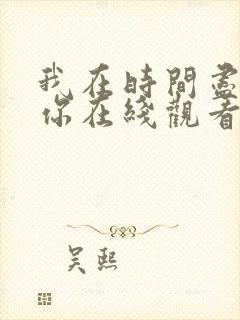 我在時間盡
你在綫觀看
吴熙